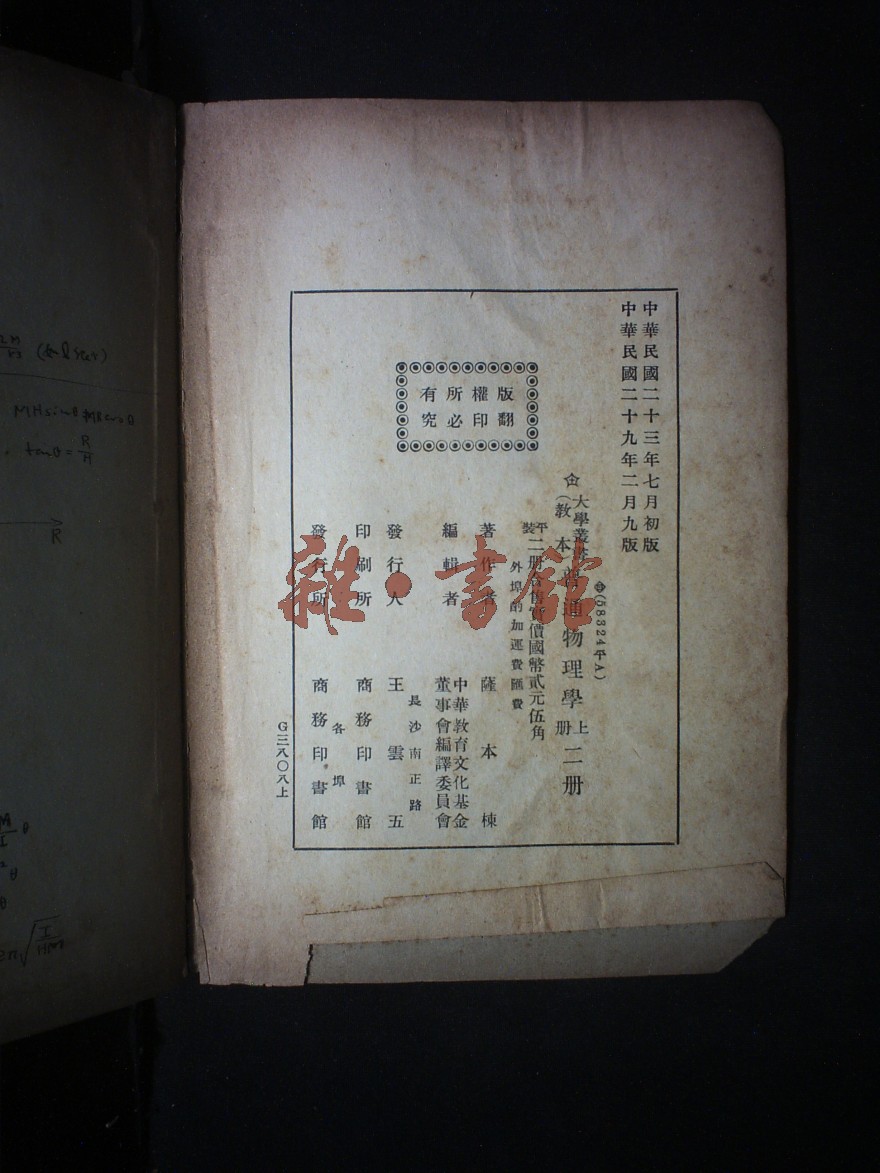 中華民國二十三年七月初版
中華民國二十九年二月九版
(58324平A)
大學叢書
(教本)
普通物理學
上册
二册
平裝
二册合售實價國幣貳元伍角
外埠酌加運費匯費
版權所有
翻印必究
著作者 薩本棟
編輯者 中華教育文化基金
董事會編譯委員會
長沙南正路
發行人 王雲五
印刷所 商務印書館
各埠
發行所 商務印書館
G三八〇八上
雜·書館
MH sinθ = MR cosθ
tanθ = R/H
R